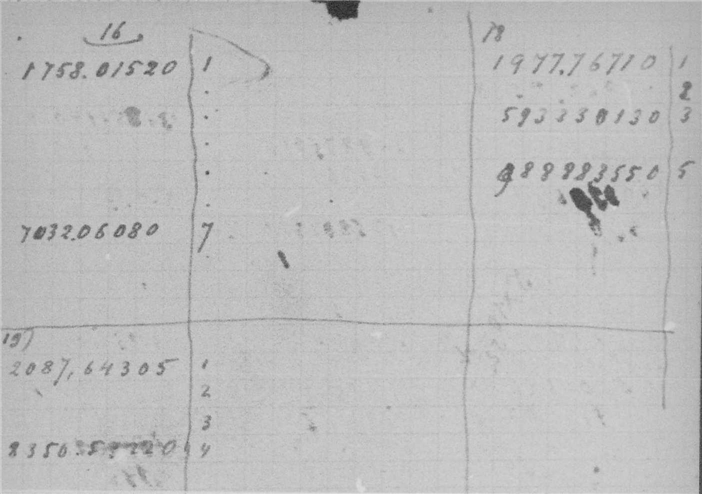 16
1758.01520 1
7032.06080 7
18
1977.76710 1
2
593330130 3
988883550 5
19)
2087,64305 1
2
3
8350.57220 4